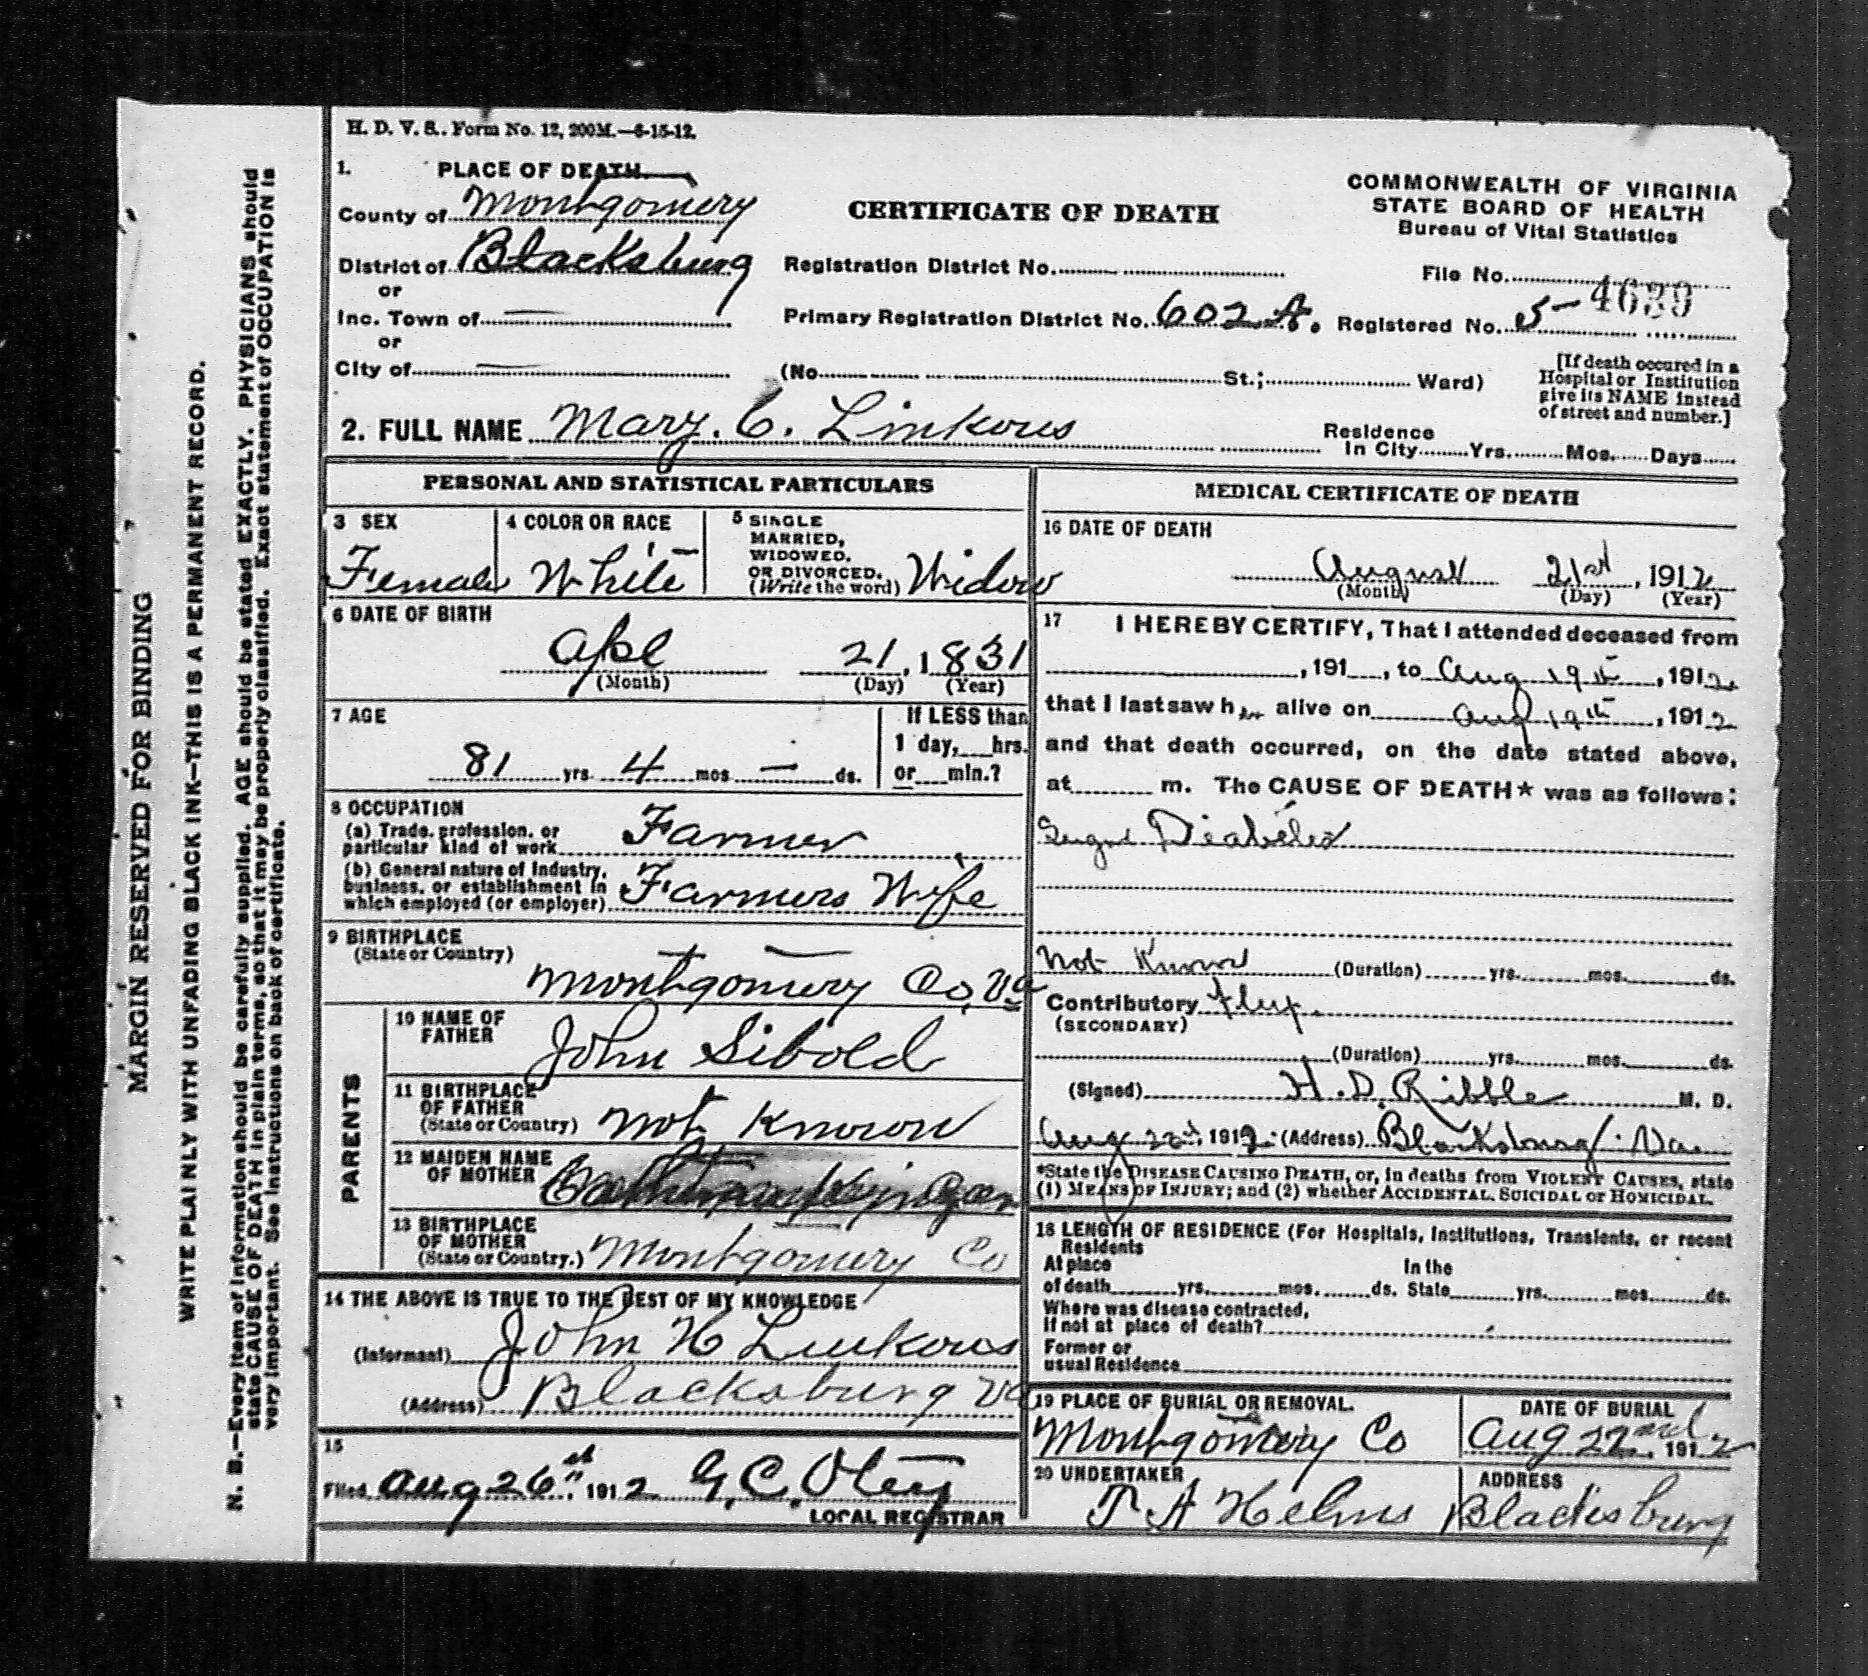 H. D. V. S.. Form No. 12, 200M.—6-15-12.
1. PLACE OF DEATH
County of Montgomery
District of Blacksburg
or
Inc. Town of —
or
City of —
CERTIFICATE OF DEATH
COMMONWEALTH OF VIRGINIA
STATE BOARD OF HEALTH
Bureau of Vital Statistics
Registration District No.
File No. 4639
Primary Registration District No. 602 A. Registered No. 5-
(No. St.; Ward)
[If death occured in a
Hospital or Institution
give its NAME instead
of street and number.]
2. FULL NAME Mary. C. Linkous
Residence
In City Yrs. Mos. Days
PERSONAL AND STATISTICAL PARTICULARS
3 SEX
Female
4 COLOR OR RACE
White
5 SINGLE
MARRIED,
WIDOWED.
OR DIVORCED.
(Write the word) Widow
6 DATE OF BIRTH
Apl 21, 1831
(Month) (Day) (Year)
7 AGE
81 yrs. 4 mos — ds.
If LESS than
1 day, hrs.
or min.?
8 OCCUPATION
(a) Trade. profession. or
particular kind of work Farmer
(b) General nature of Industry.
business. or establishment in
which employed (or employer) Farmers Wife
9 BIRTHPLACE
(State or Country)
Montgomery Co, Va
PARENTS
10 NAME OF
FATHER
John Sibold
11 BIRTHPLACE
OF FATHER
(State or Country) Not Known
12 MAIDEN NAME
OF MOTHER
13 BIRTHPLACE
OF MOTHER
(State or Country.) Montgomery Co
14 THE ABOVE IS TRUE TO THE BEST OF MY KNOWLEDGE
(Informant) John H Linkous
(Address) Blacksburg Va
15
Filed Aug 26 1912 G. C. Otey
LOCAL REGISTRAR
MEDICAL CERTIFICATE OF DEATH
16 DATE OF DEATH
August 21st, 1912
(Month) (Day) (Year)
17 I HEREBY CERTIFY, That I attended deceased from
, 191 , to Aug 19th, 1912
that I last saw her alive on Aug 19th, 1912
and that death occurred, on the date stated above,
at m. The CAUSE OF DEATH★ was as follows:
Diabetes
Not Known (Duration) yrs. mos. ds.
Contributory
(SECONDARY)
(Duration) yrs. mos. ds.
(Signed) H. D. Ribble M. D.
Aug 1912 (Address) Blacksburg Va
*State the DISEASE CAUSING DEATH, or, in deaths from VIOLENT CAUSES, state
(1) MEANS OF INJURY; and (2) whether ACCIDENTAL. SUICIDAL or HOMICIDAL.
18 LENGTH OF RESIDENCE (For Hospitals, Institutions, Transients, or recent
Residents
At place In the
of death yrs. mos. ds. State yrs. mos. ds.
Where was disease contracted,
If not at place of death?
Former or
usual Residence
19 PLACE OF BURIAL OR REMOVAL.
Montgomery Co
DATE OF BURIAL
Aug 22nd. 1912
20 UNDERTAKER
T A Helms
ADDRESS
Blacksburg
MARGIN RESERVED FOR BINDING
WRITE PLAINLY WITH UNFADING BLACK INK—THIS IS A PERMANENT RECORD.
N. B.—Every item of information should be carefully supplied. AGE should be stated EXACTLY. PHYSICIANS should
state CAUSE OF DEATH in plain terms, so that it may be properly classified. Exact statement of OCCUPATION is
very important. See instructions on back of certificate.